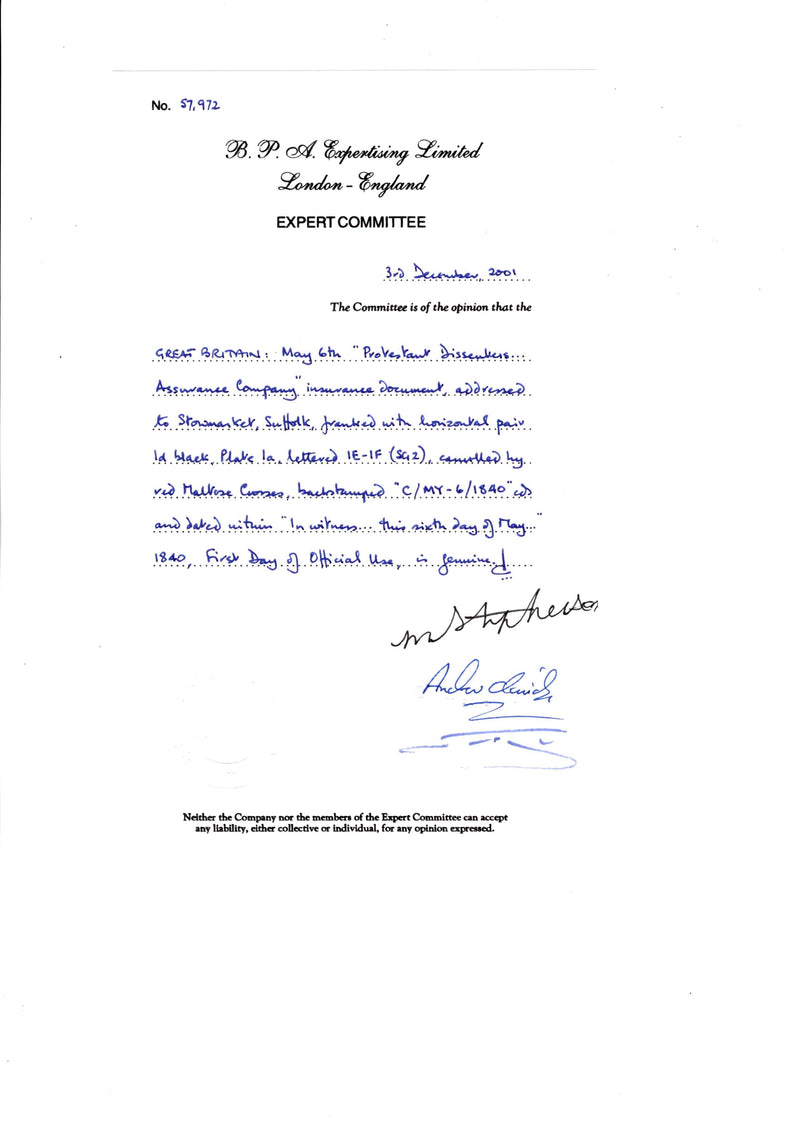 No. 57,972
B. P. A. Expertising Limited
London - England
EXPERT COMMITTEE
3rd December, 2001
The Committee is of the opinion that the
GREAT BRITAIN: May 6th "Protestant Dissenters...
Assurance Company" insurance document, addressed
to Stowmarket, Suffolk, franked with horizontal pair
1d black, Plate 1a, lettered IE-IF (SG2), cancelled by
red Maltese Crosses, backstamped "C/MY-6/1840" cds
and dated within "In witness... this sixth day of May..."
1840, First Day of Official Use, is genuine.
M Stephenson
Neither the Company nor the members of the Expert Committee can accept
any liability, either collective or individual, for any opinion expressed.